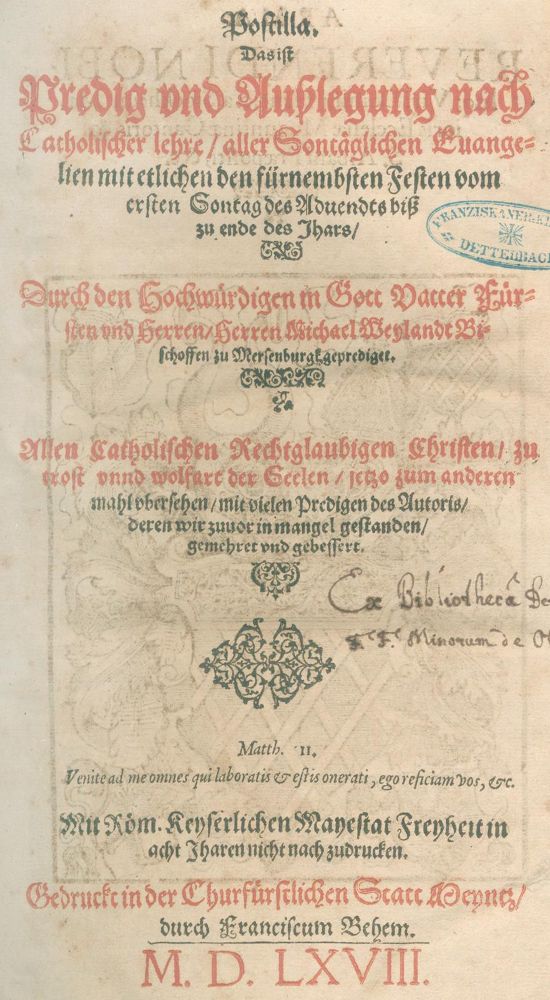 Postilla.
Das ist
Predig vnd Außlegung nach
Catholischer lehre / aller Sontäglichen Euange-
lien mit etlichen den fürnembsten Festen vom
ersten Sontag des Aduendts biß
zu ende des Jhars /
FRANZISKANER-
DETTELBACH
Durch den Hochwürdigen in Gott Vatter Für-
sten vnd Herren / Herren Michael Weylandt Bi-
schoffen zu Mersenburgk geprediget.
Allen Catholischen Rechtglaubigen Christen / zu
trost vnnd wolfart der Seelen / jetzo zum anderen
mahl vbersehen / mit vielen Predigen des Autoris /
deren wir zuuor in mangel gestanden /
gemehret vnd gebessert.
Ex Bibliothecâ
F. F. Minorum de
Matth. 11.
Venite ad me omnes qui laboratis & estis onerati, ego reficiam vos, &c.
Mit Röm. Keyserlichen Mayestat Freyheit in
acht Jharen nicht nach zudrucken.
Gedruckt in der Churfürstlichen Statt Meyntz /
durch Franciscum Behem.
M. D. LXVIII.